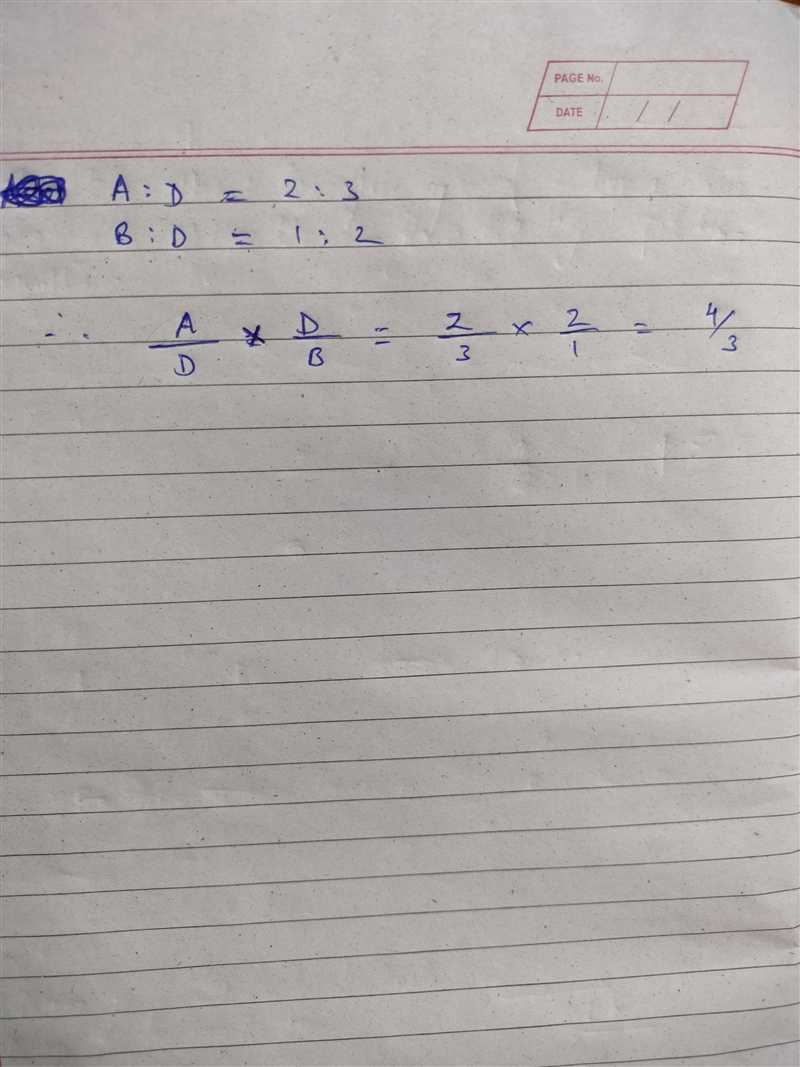 PAGE No.
DATE / /
A : D = 2 : 3
B : D = 1 : 2
∴ A/D × D/B = 2/3 × 2/1 = 4/3